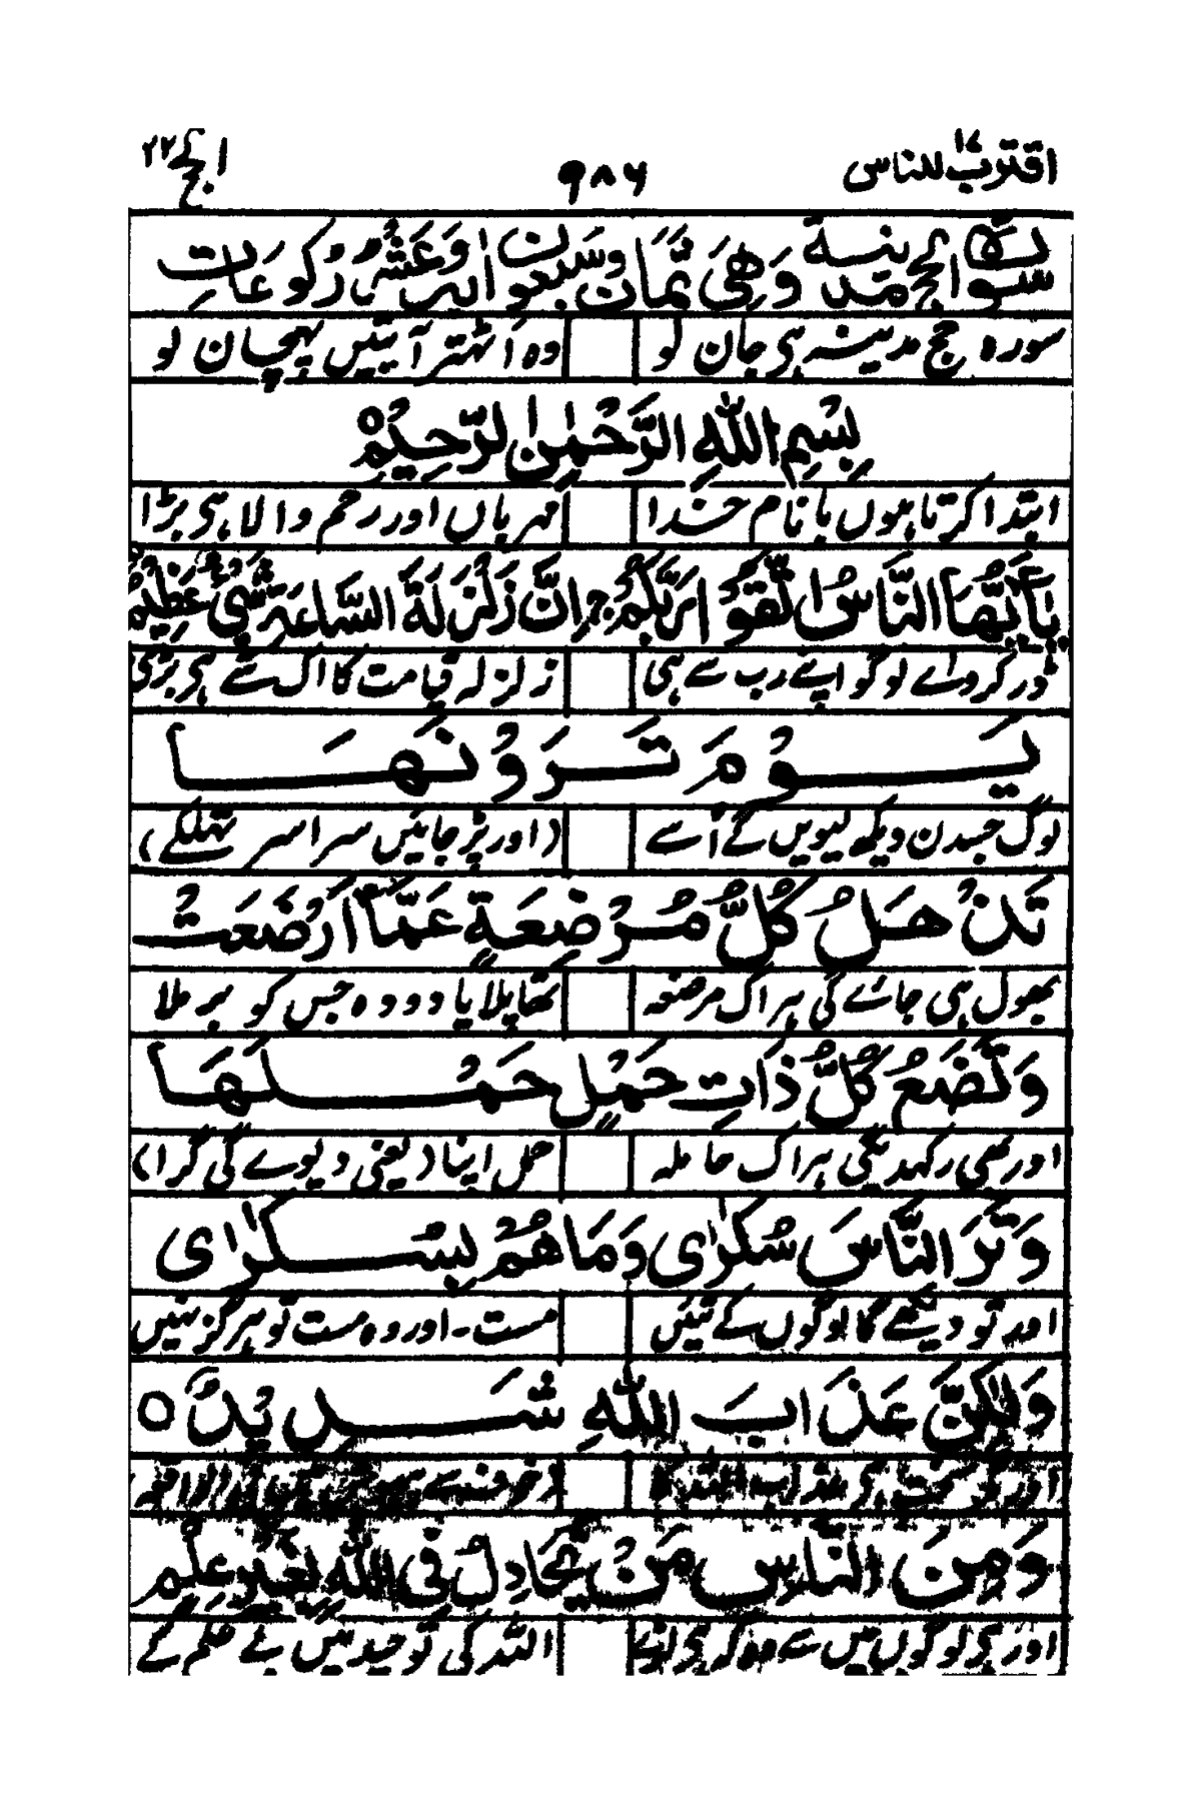 اقترب للناس ١٧ ٩٨٦ الحج ٢٢
سورة الحج مدنية وهي ثمان وسبعون اية وعشر ركوعات
سورہ حج مدینہ ہی جان لو وہ اٹھتر آیتیں پہچان لو
بِسْمِ اللّٰهِ الرَّحْمٰنِ الرَّحِيْمِ
ابتدا کرتا ہوں با نام خدا مہرباں اور رحم والا ہی بڑا
يٰاَيُّهَا النَّاسُ اتَّقُوْا رَبَّكُمْ ج اِنَّ زَلْزَلَةَ السَّاعَةِ شَيْءٌ عَظِيْمٌ
ڈر کرو اے لوگو اپنے رب سے ہی زلزلہ قیامت کا اک شے ہی بڑی
يَوْمَ تَرَوْنَهَا
لوگ جسدن دیکھ لیویں گے اُسے (اور پڑ جائیں سراسر تہلکے)
تَذْهَلُ كُلُّ مُرْضِعَةٍ عَمَّا اَرْضَعَتْ
بھول ہی جاے گی ہر اک مرضعہ تھا پلایا دودہ جس کو برملا
وَتَضَعُ كُلُّ ذَاتِ حَمْلٍ حَمْلَهَا
اور بھی رکھدیگی ہر اک حاملہ حمل اپنا (یعنی دیوے گی گرا)
وَتَرَى النَّاسَ سُكٰرٰى وَمَا هُمْ بِسُكٰرٰى
اور تو دیکھے گا لوگوں کے تئیں مست - اور وہ مست تو ہرگز نہیں
وَلٰكِنَّ عَذَابَ اللّٰهِ شَدِيْدٌ ○
وَمِنَ النَّاسِ مَنْ يُّجَادِلُ فِي اللّٰهِ بِغَيْرِ عِلْمٍ
اور ہی لوگوں میں سے وہ کہ اللہ کی توحید میں بے علم کے